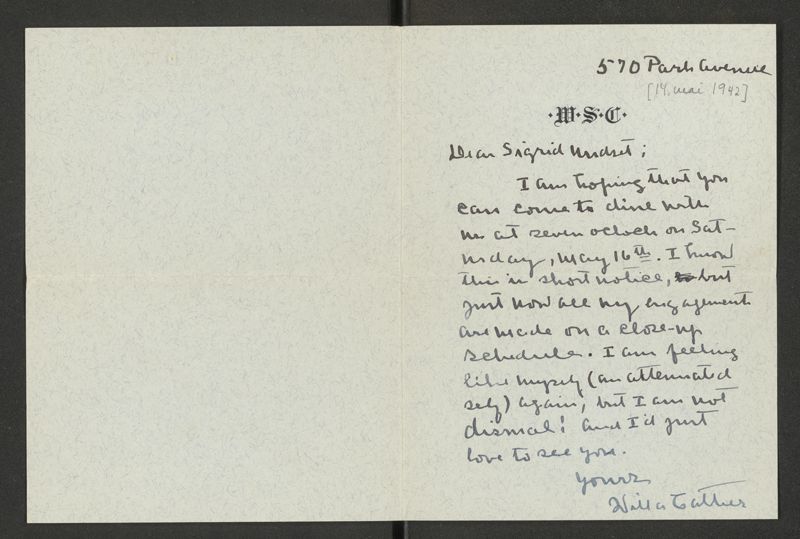 570 Park Avenue
[14. mai 1942]
·W·S·C·
Dear Sigrid Undset;
I am hoping that you
can come to dine with
me at seven oclock on Sat-
urday, May 16th. I know
this is short notice, but
just now all my engagements
are made on a close-up
schedule. I am feeling
like myself (an attenuated
self) again, but I am not
dismal! and I'd just
love to see you.
Yours
Willa Cather